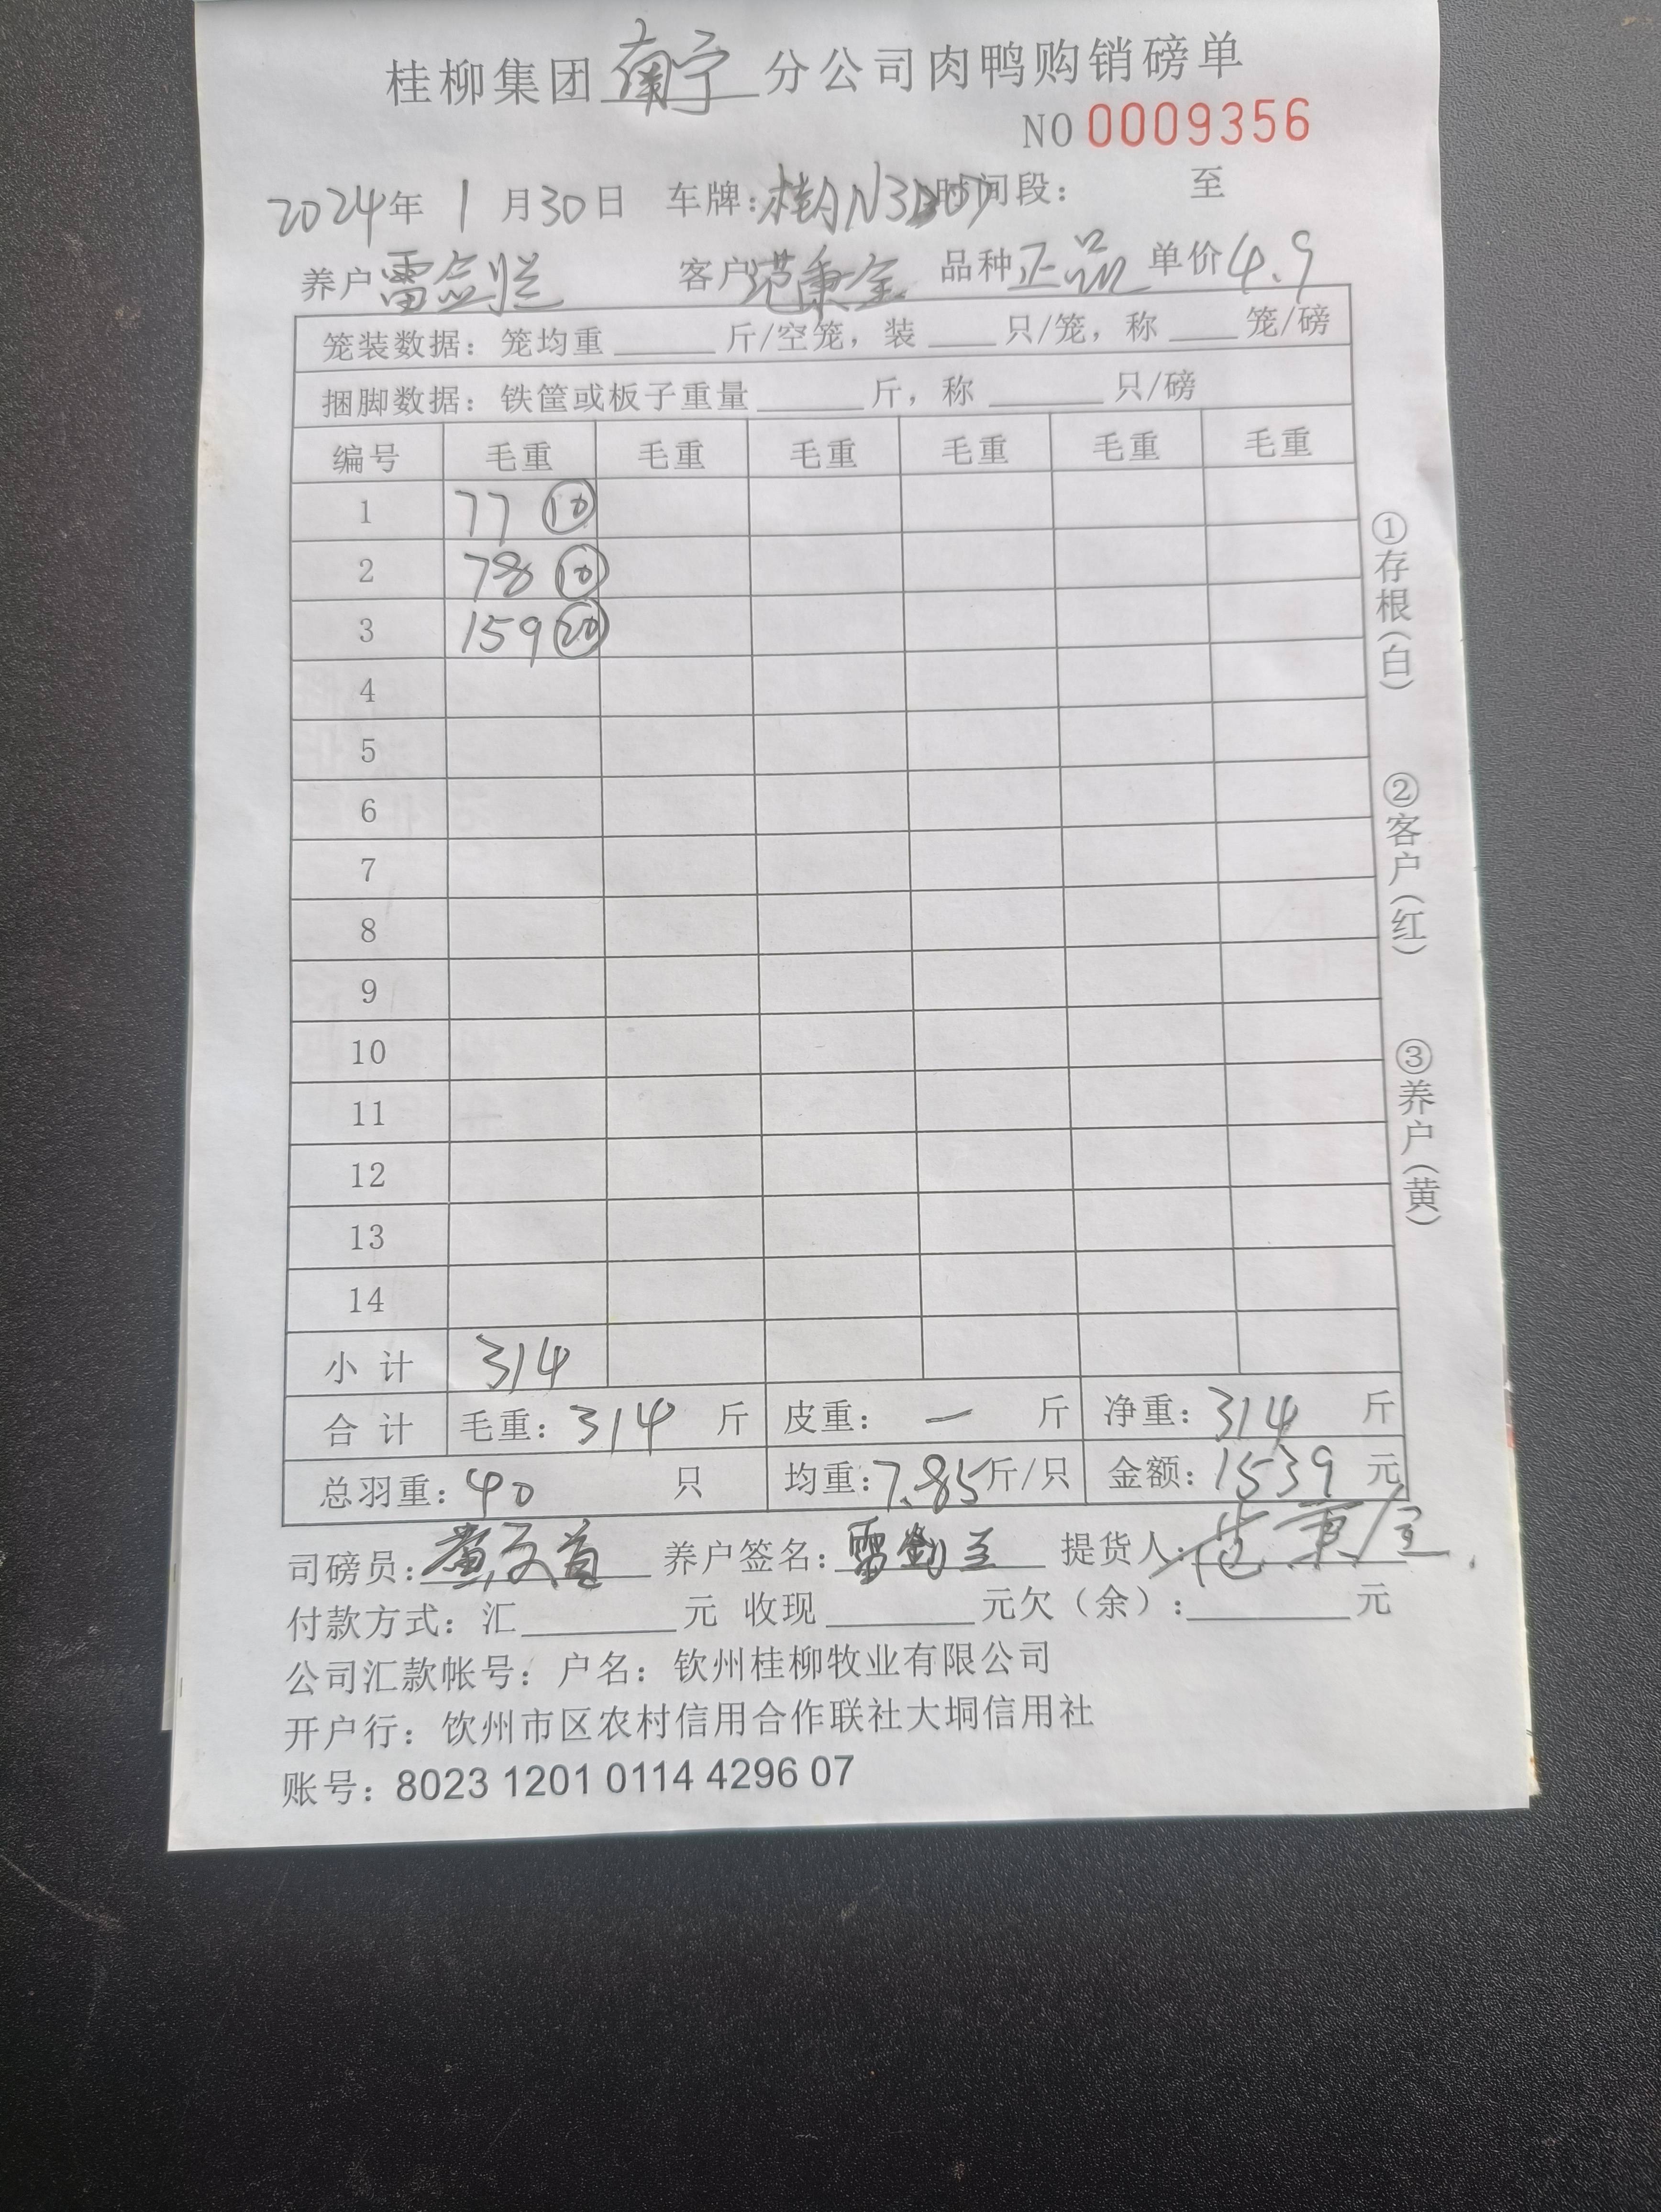 桂柳集团南宁分公司肉鸭购销磅单
NO 0009356
2024年 1月30日 车牌: 时间段: 至
养户雷 客户范秉全 品种正品 单价4.9
笼装数据: 笼均重____斤/空笼, 装____只/笼, 称____笼/磅
捆脚数据: 铁筐或板子重量____斤, 称____只/磅
编号 毛重 毛重 毛重 毛重 毛重 毛重
1 77 ⑩
2 78 ⑩
3 159 ⑳
4
5
6
7
8
9
10
11
12
13
14
小计 314
合计 毛重: 314 斤 皮重: 一 斤 净重: 314 斤
总羽重: 40 只 均重: 7.85斤/只 金额: 1539 元
司磅员: 养户签名: 雷 提货人: 范秉全
付款方式: 汇____元 收现____元欠(余):____元
公司汇款帐号: 户名: 钦州桂柳牧业有限公司
开户行: 饮州市区农村信用合作联社大垌信用社
账号: 8023 1201 0114 4296 07
①存根(白)
②客户(红)
③养户(黄)